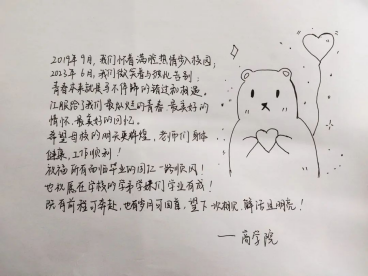 2019年9月,我们怀着满腔热情步入校园;
2023年6月,我们微笑着与彼此告别;
青春本来就是马不停蹄的错过和相遇。
江服给了我们最灿烂的青春、最美好的
情怀、最美好的回忆。
希望母校的明天更辉煌,老师们身体
健康,工作顺利!
祝福所有面临毕业的同仁一路顺风!
也祝愿在学校的学弟学妹们学业有成!
既有前程可奔赴,也有岁月可回首,望下次相见,鲜活且明亮!
——商学院